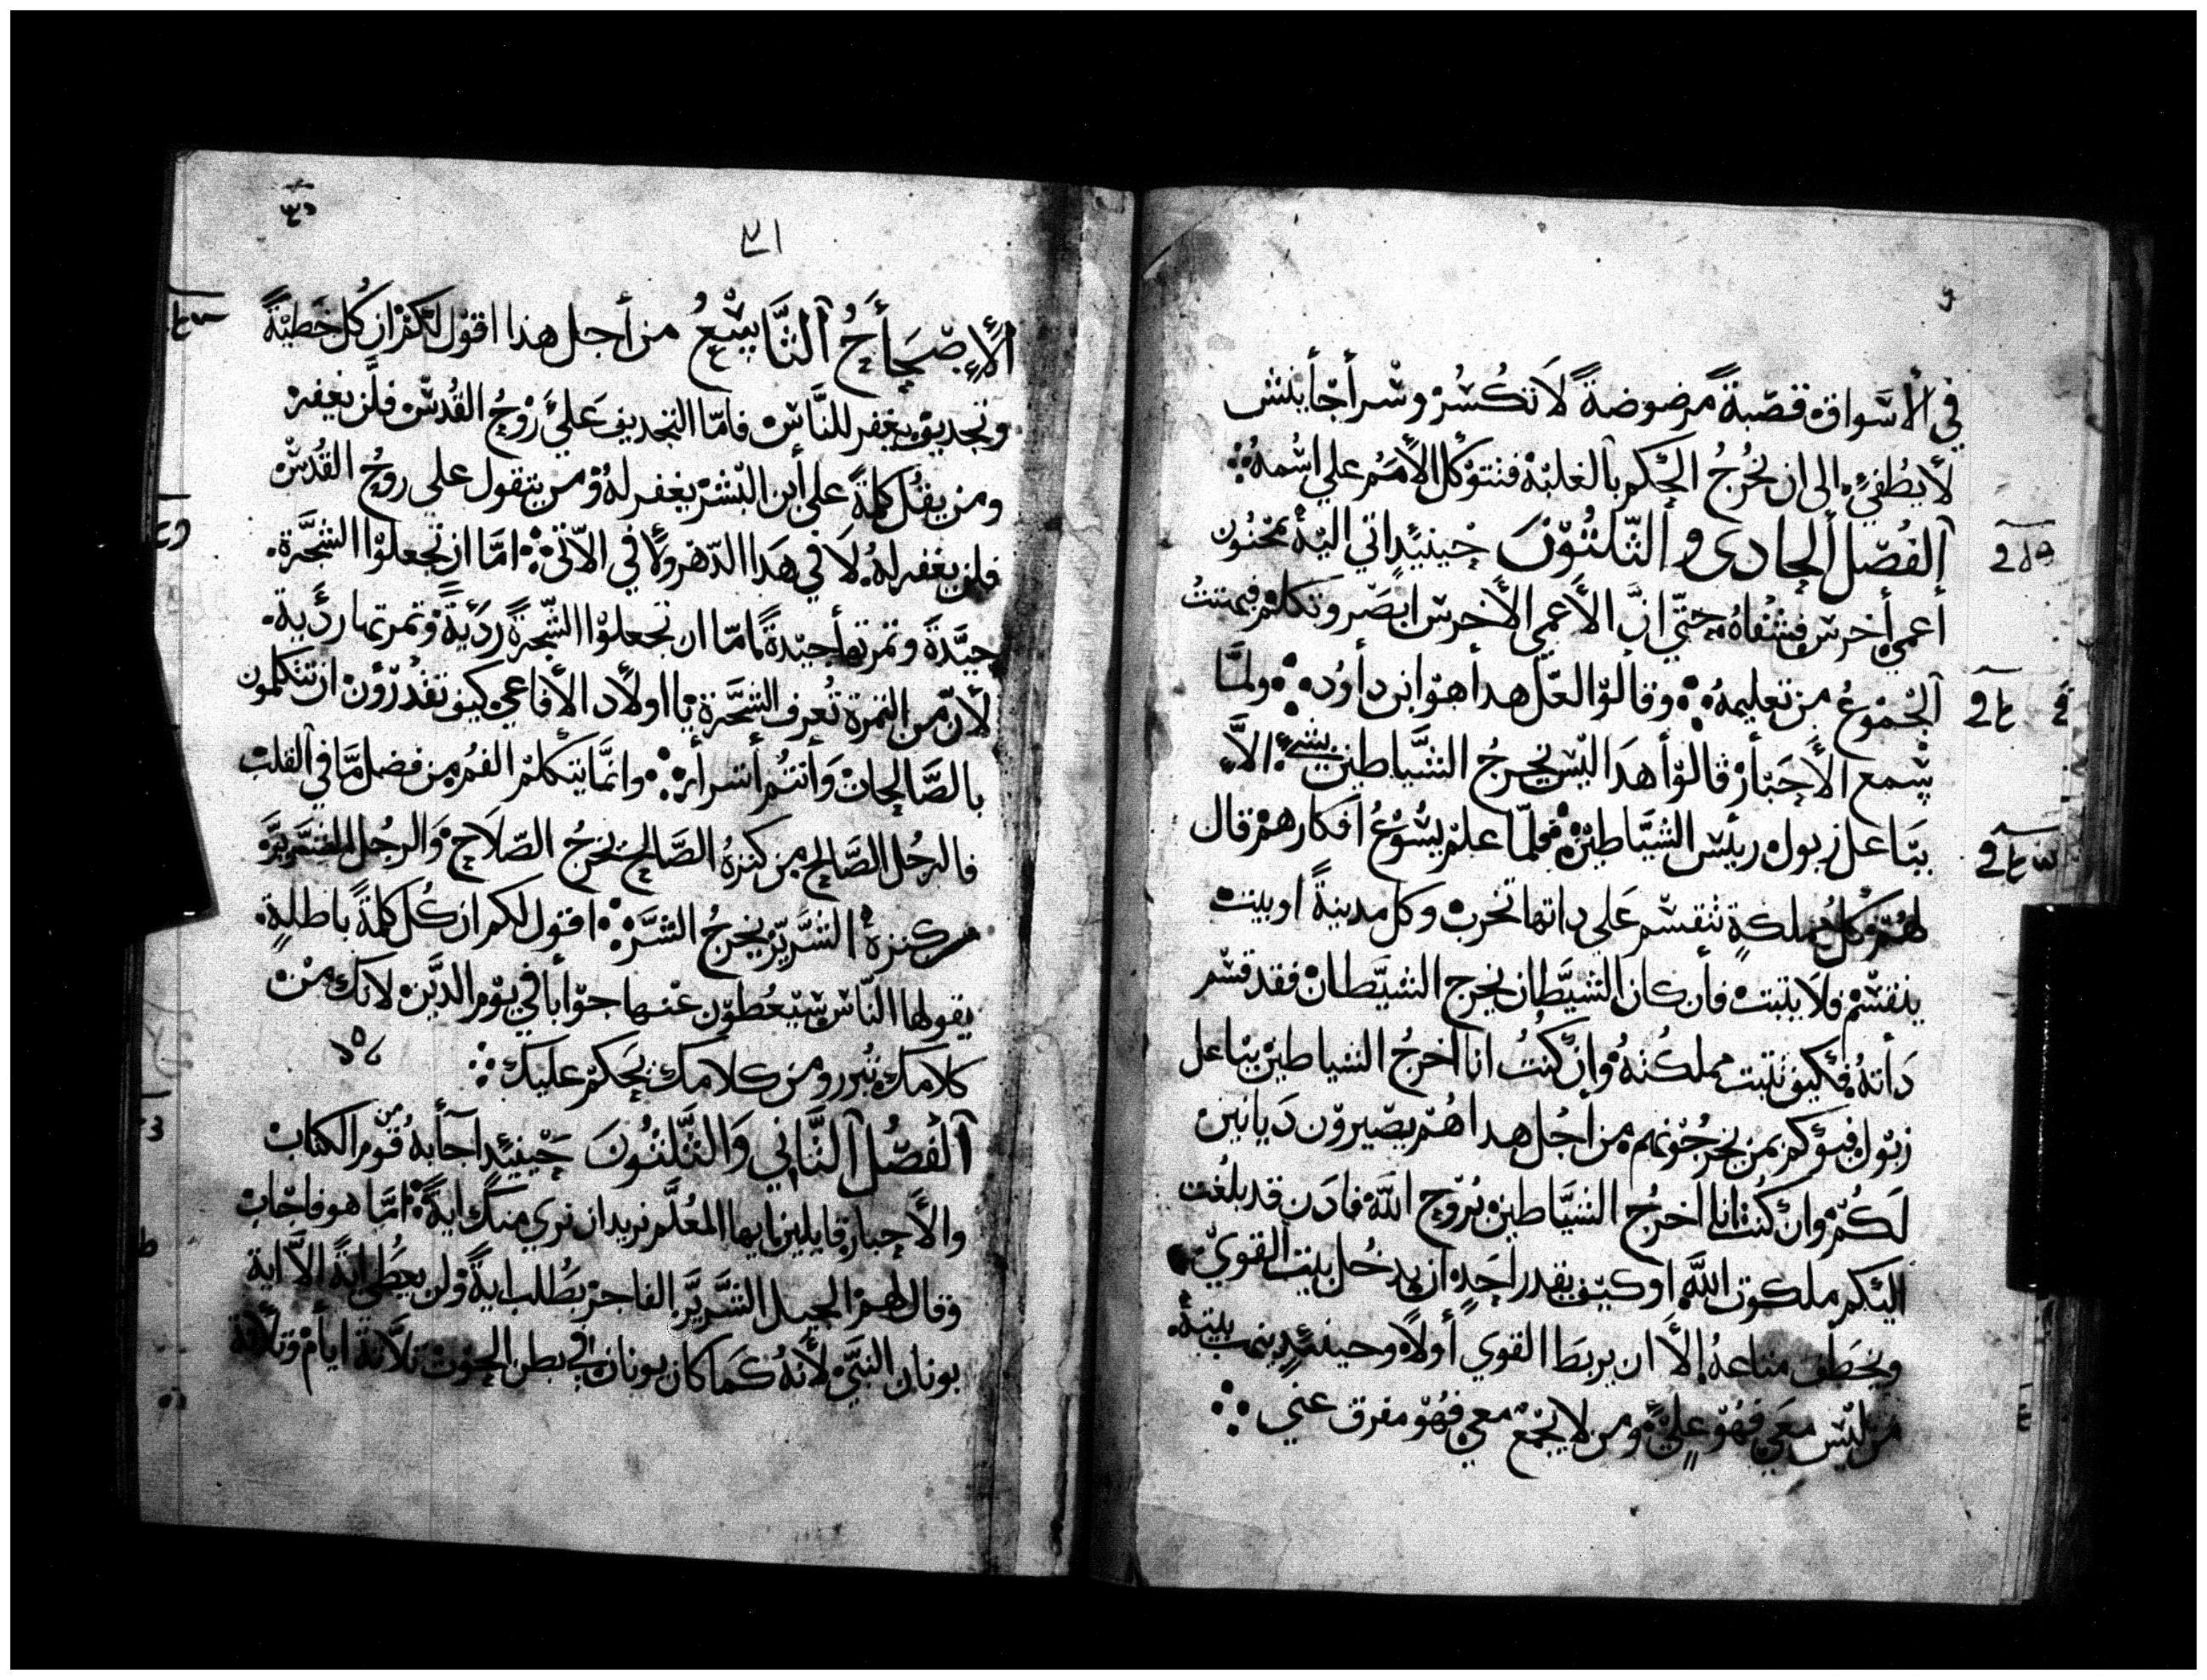 في الأسواق قصبةً مرضوضةً لا تكسُر وسراجاً ينش
لا يُطفيُ الى ان يخرُجُ الحكم بالغلبة فتتوكل الأمَم علي اسمهُ
الفصل الحادي والثلثون حينيدٍ اتي اليهُ مجنون
أعمي أخرس فشفاهُ حتّي انَّ الأعمي الأخرس ابصَر وتكلم فبهتتُ
الجموعُ من تعليمهُ وقالوا لعلّ هدا هوا ابن داوُد ولمَّا
سمع الأحبَار قالوا هدا ليس يخرجُ الشيَّاطين بشيٍ الاَّ
ببَاعل زبول رييس الشيَّاطين فلمّا علم يسُوعُ افكارهم قال
لهُم كل مملكةٍ تنقسم عَلي داتها تخرب وكل مدينةً او بيت
ينقسم فلا يتبت فأن كان الشيَّطان يخرج الشيَّطان فقد قسم
دَاتهُ فكيف تتبت مملكتهُ وان كنتُ انا اخرجُ الشياطين بباعل
زبول فبنوكم بمن يخرجُونهم من أجل هدا هُم يصيرون دَيانين
لَكُم وان كنت انا اخرجُ الشيَّاطين بُروح الله فادَن قد بلغت
اليكم ملكوت اللَّه او كيف يقدر احَدٍ ان يدخُل بيت القويّ
ويخطف متاعهُ الاَّ ان يربطَ القوي أولاً وحينيدٍ ينهب بيتهُ
من ليس معَي فهُو عليَّ ومن لا يجمَع معي فهُو مفرق عني
٣١
الأصحَاحُ التَّاسعُ من أجل هذا اقول لكم ان كُل خَطيةً
وتجديف يغفر للنَّاس فامّا التجديف عَلي رَوحُ القُدس فلَن يغفر
ومن يقُل كلمةً علي أبن البشر يغفر لهُ ومن يتقول علي روحُ القدُس
فلن يغفر لهُ لاَ في هَدا الدّهر ولاَ في الاتي امَّا ان تجعلوا الشجَرة
جيَّدةَ وتمرتها جيّدةً امّا ان تجعلوا الشجرةً رَديةً وتمرتها رديَة
لأن من التمرة تُعرف الشجَرة يا اولاد الأفاعي كيف تقدُرون ان تتكلمون
بالصَّالحات وَأنتُم أشرار وانمَّا يتكلم الفمُ من فضل مَا في القلب
فالرجُل الصَّالح من كنزهُ الصَّالح يخرجُ الصّلاح وَالرجُل الشرَير
من كنزهُ الشرَّير يخرجُ الشَّر اقول لكم ان كُل كلمةً باطلةٍ
يقولها النّاس سَيعُطون عنها جوَابا في يوم الدّين لانك من
كلامك تُبرر ومن كلامك يحَكم عليك
الفصُل التَّاني وَالثَّلثُونَ حَينيدٍ اجَابهُ قوم من الكتاب
والأحبار قايلين ايها المعُلَّم نريد ان نري منك ايةً امّا هو فاجَاب
وقال لهم الجيل الشَّريرَّ الفاجر يطُلب ايةً ولن يعطي ايةً الاَّ اية
يونان النبيَ لأنهُ كمَا كان يونان في بطن الحوت تلاتة ايام وتلاتة